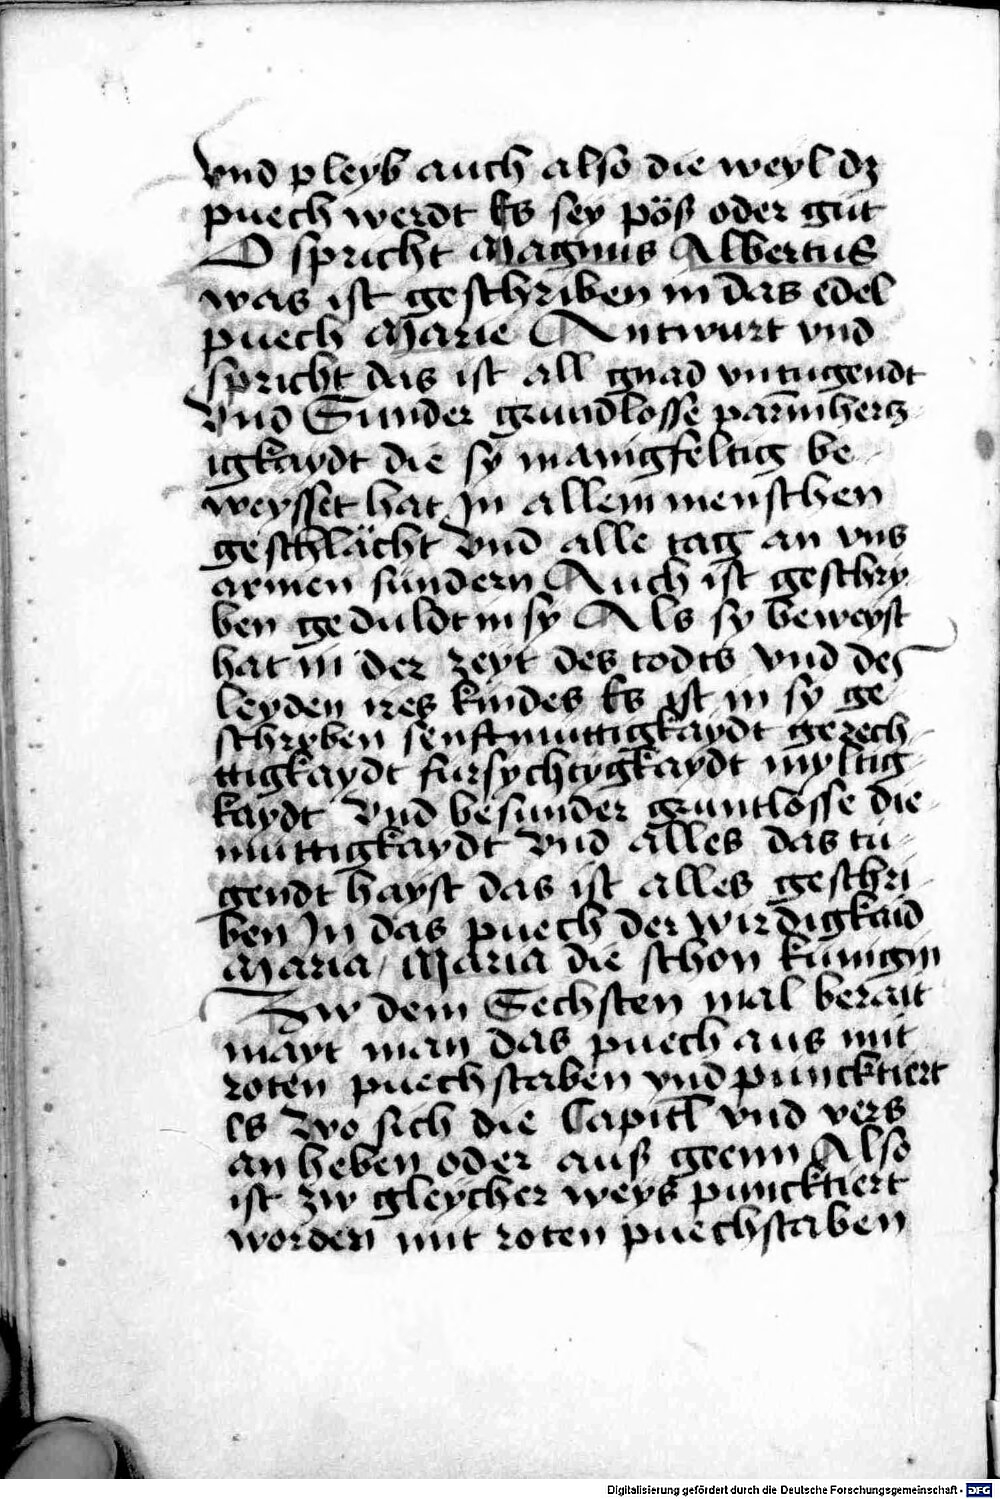 vnd pleyb auch also die weyl dz
puech werdt Es sey pöß oder gut
O spricht Magnus Albertus
was ist geschriben in das edel
puech Marie Antwurt vnd
spricht das ist all gnad vntugendt
vnd Sunder grundlosse parmhertz-
igkaydt die sy manigfeltig be-
weysset hat In allem menschen
geschlächt vnd alle tag an vns
armen sundern Auch ist geschry-
ben geduldt in sy Als sy beweyst
hat in der zeyt des todts vnd des
leyden ires kindes Es ist in sy ge-
schryben senftmuttigkaydt gerech-
ttigkaydt fursychtygkaydt myltig-
kaydt vnd besunder gruntlosse die-
muttigkaydt vnd alles das tu-
gendt hayst das ist alles geschri-
ben In das puech der wirdigkaid
Maria / Maria die schon kunigin
Zw dem Sechsten mal berait
mayt man das puech aus mit
roten puechstaben vnd puncktiert
es wo sich die Capitl vnd vers
an heben oder auß geenn Also
ist zw gleycher weys puncktiert
worden mit roten puechstaben
Digitalisierung gefördert durch die Deutsche Forschungsgemeinschaft - DFG